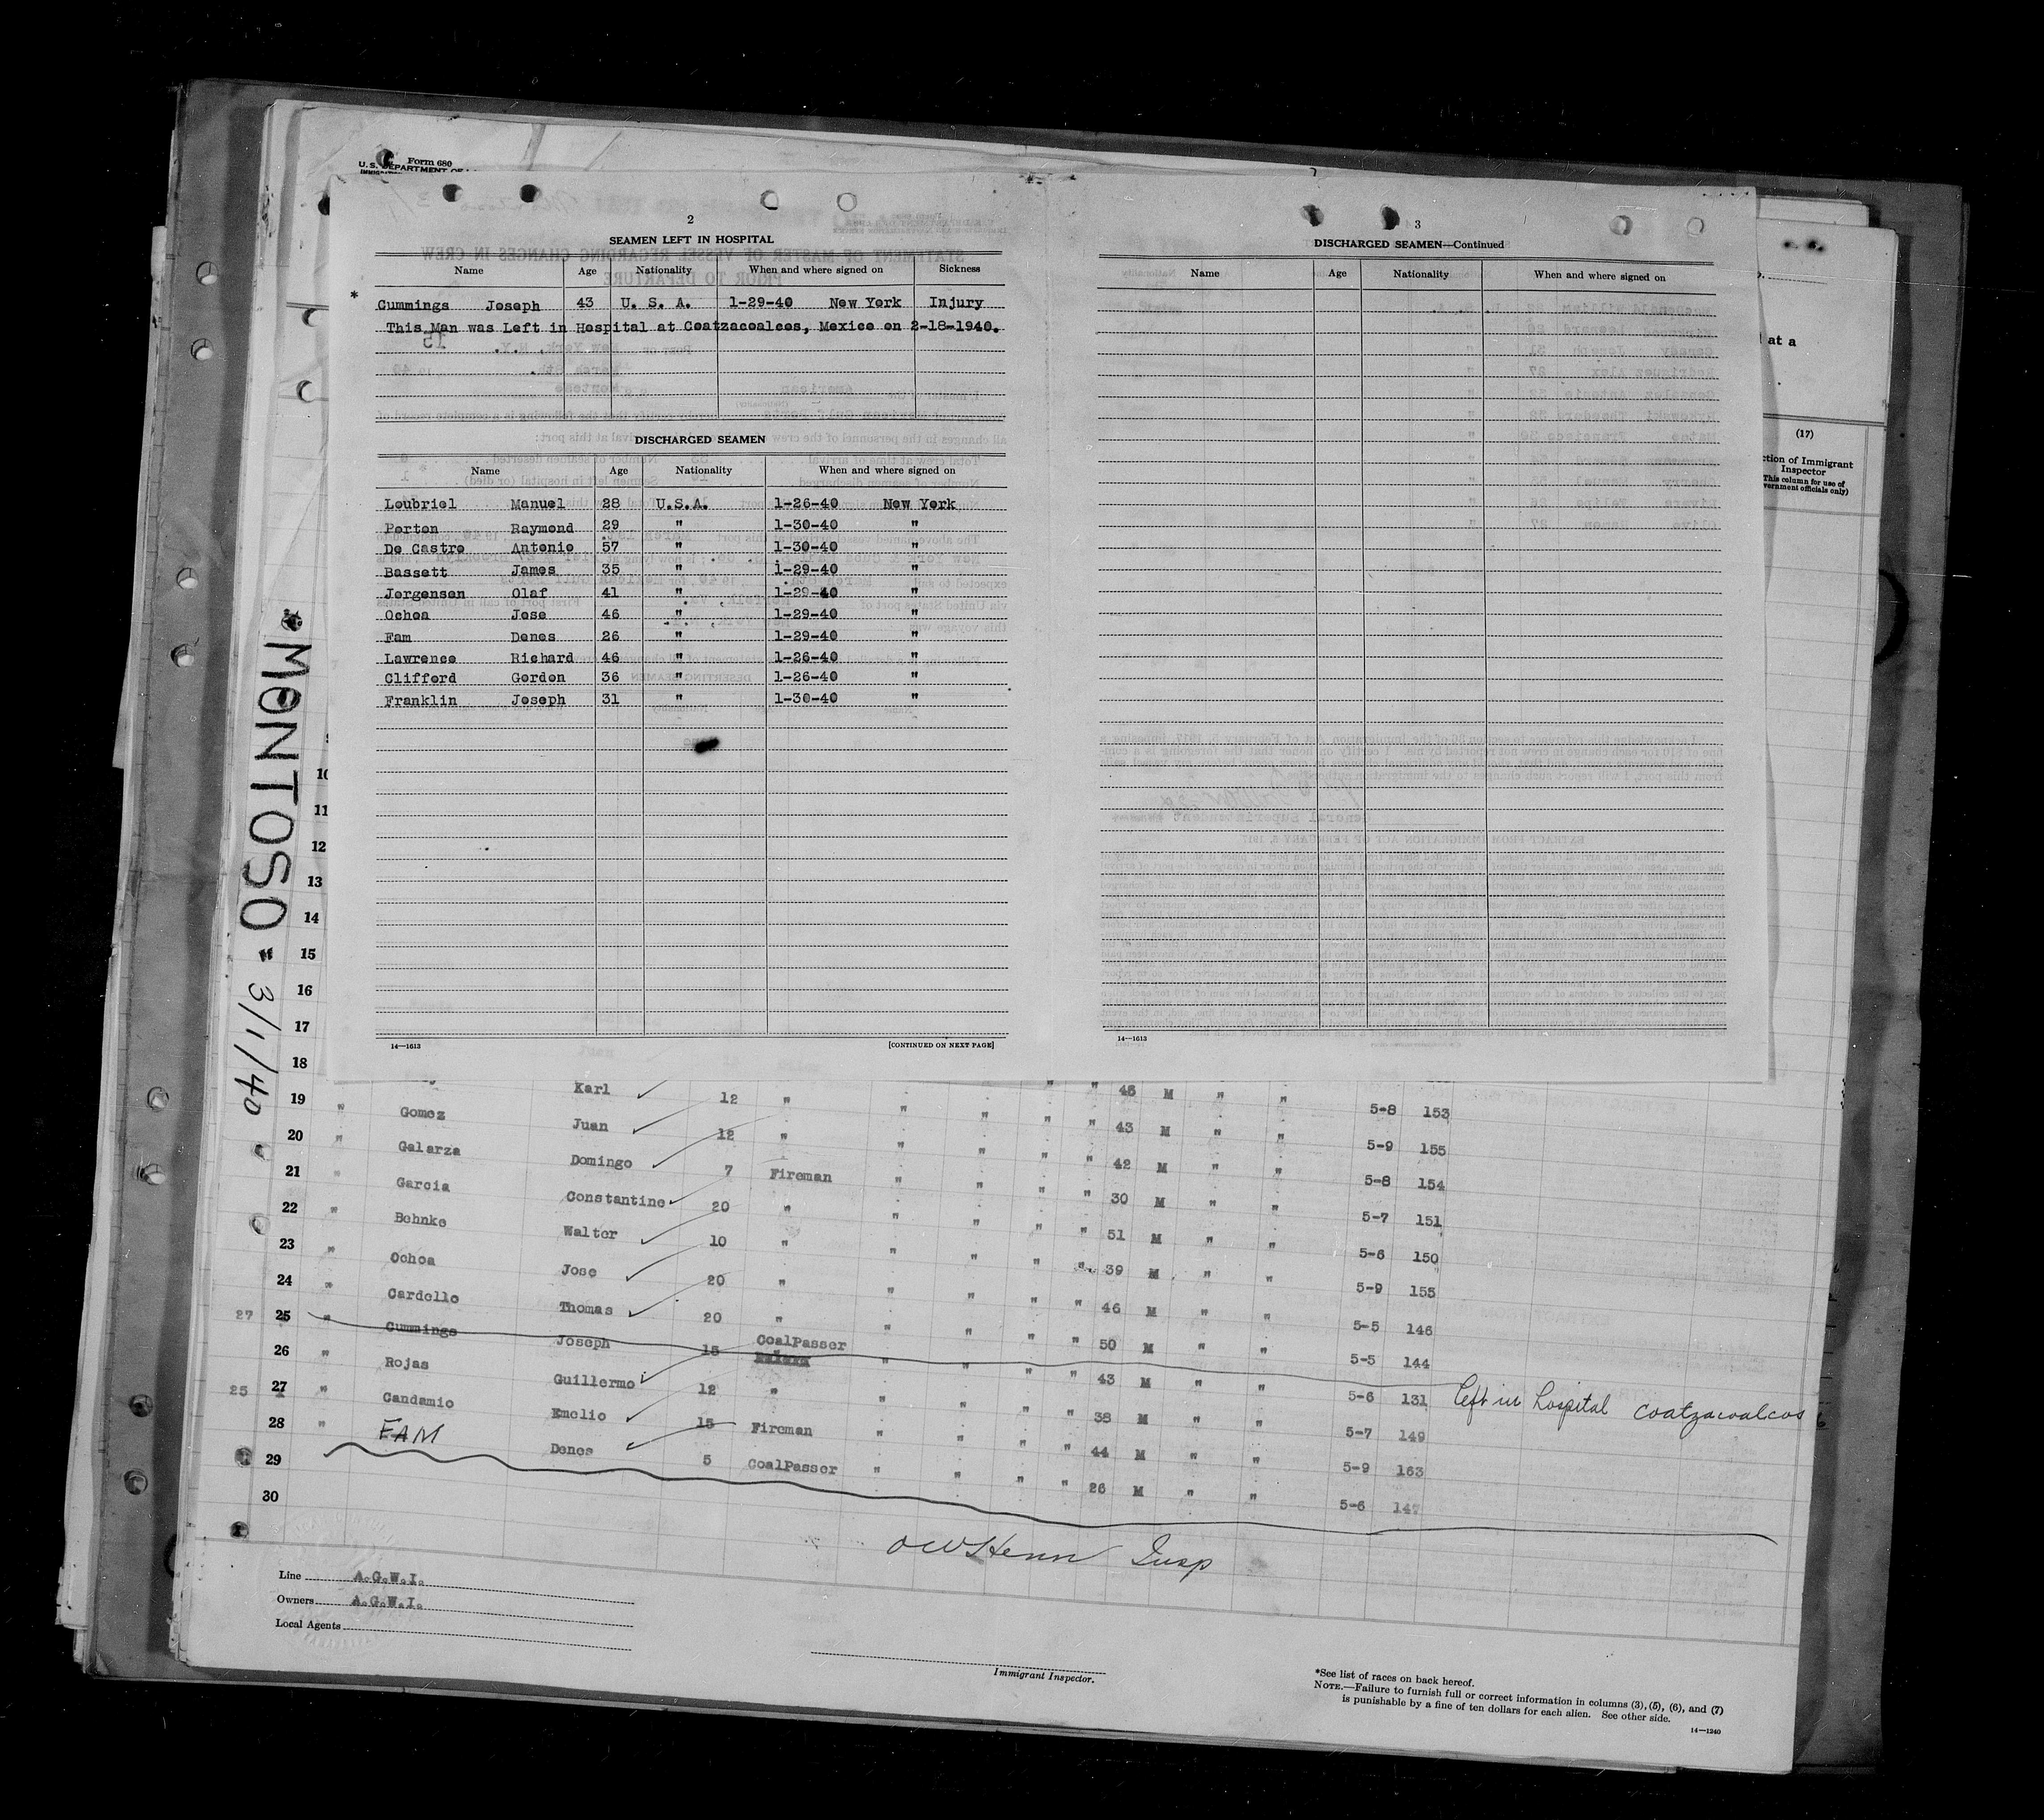 Form 680
U. S. DEPARTMENT OF
2
SEAMEN LEFT IN HOSPITAL
Name Age Nationality When and where signed on Sickness
* Cummings Joseph 43 U. S. A. 1-29-40 New York Injury
This Man was Left in Hospital at Coatzacoalcos, Mexico on 2-18-1940.
DISCHARGED SEAMEN
Name Age Nationality When and where signed on
Loubriel Manuel 28 U.S.A. 1-26-40 New York
Porton Raymond 29 " 1-30-40 "
De Castro Antonio 57 " 1-30-40 "
Bassett James 35 " 1-29-40 "
Jorgensen Olaf 41 " 1-29-40 "
Ochoa Jose 46 " 1-29-40 "
Fam Denes 26 " 1-29-40 "
Lawrence Richard 46 " 1-26-40 "
Clifford Gordon 36 " 1-26-40 "
Franklin Joseph 31 " 1-30-40 "
14—1613 [CONTINUED ON NEXT PAGE]
3
DISCHARGED SEAMEN—Continued
Name Age Nationality When and where signed on
14—1613
at a
(17)
ction of Immigrant
Inspector
This column for use of
vernment officials only)
"MONTOSO" 3/1/40
10
11
12
13
14
15
16
17
18
Karl 12 " " " " " 45 M " " 5-8 153
19 " Gomez Juan 12 " " " " " 43 M " " 5-9 155
20 " Galarza Domingo 7 Fireman " " " " 42 M " " 5-8 154
21 " Garcia Constantine 20 " " " " " 30 M " " 5-7 151
22 " Behnke Walter 10 " " " " " 51 M " " 5-6 150
23 " Ochoa Jose 20 " " " " " 39 M " " 5-9 155
24 " Cardello Thomas 20 " " " " " 46 M " " 5-5 146
27 25 " Cummings Joseph 15 CoalPasser " " " " 50 M " " 5-5 144
26 " Rojas Guillermo 12 " " " " " 43 M " " 5-6 131 left in hospital Coatzacoalcos
25 27 " Candamio Emelio 15 Fireman " " " " 38 M " " 5-7 149
28 " FAM Denes 5 CoalPasser " " " " 44 M " " 5-9 163
29 26 M " " 5-6 147
30
OWHenn Insp
Line A.G.W.I.
Owners A.G.W.I.
Local Agents
Immigrant Inspector.
*See list of races on back hereof.
NOTE.—Failure to furnish full or correct information in columns (3), (5), (6), and (7)
is punishable by a fine of ten dollars for each alien. See other side.
14—1240